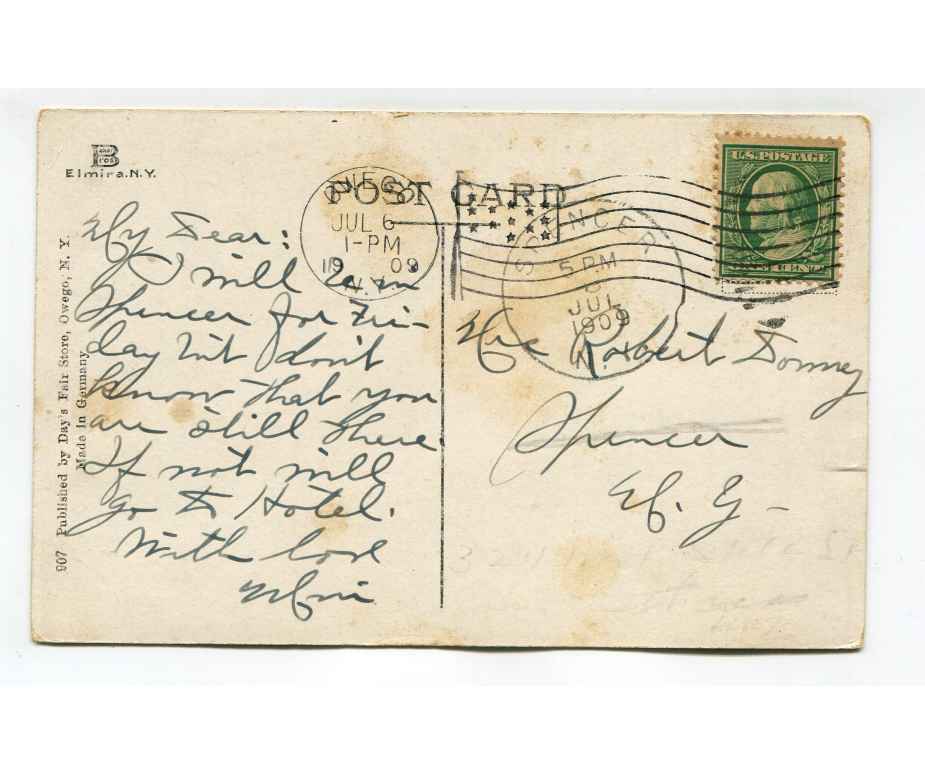 Baker Bros
Elmira, N.Y.
POST CARD
OWEGO
JUL 6
1-PM
1909
N.Y.
SPENCER
5 PM
6
JUL
1909
N.Y.
U.S. POSTAGE
ONE CENT
My Dear:
I will be in
Spencer for Fri-
day but don't
know that you
are still there.
If not will
go to Hotel.
With love
Robert
Spencer
N. Y.
907 Published by Day's Fair Store, Owego, N. Y.
Made in Germany